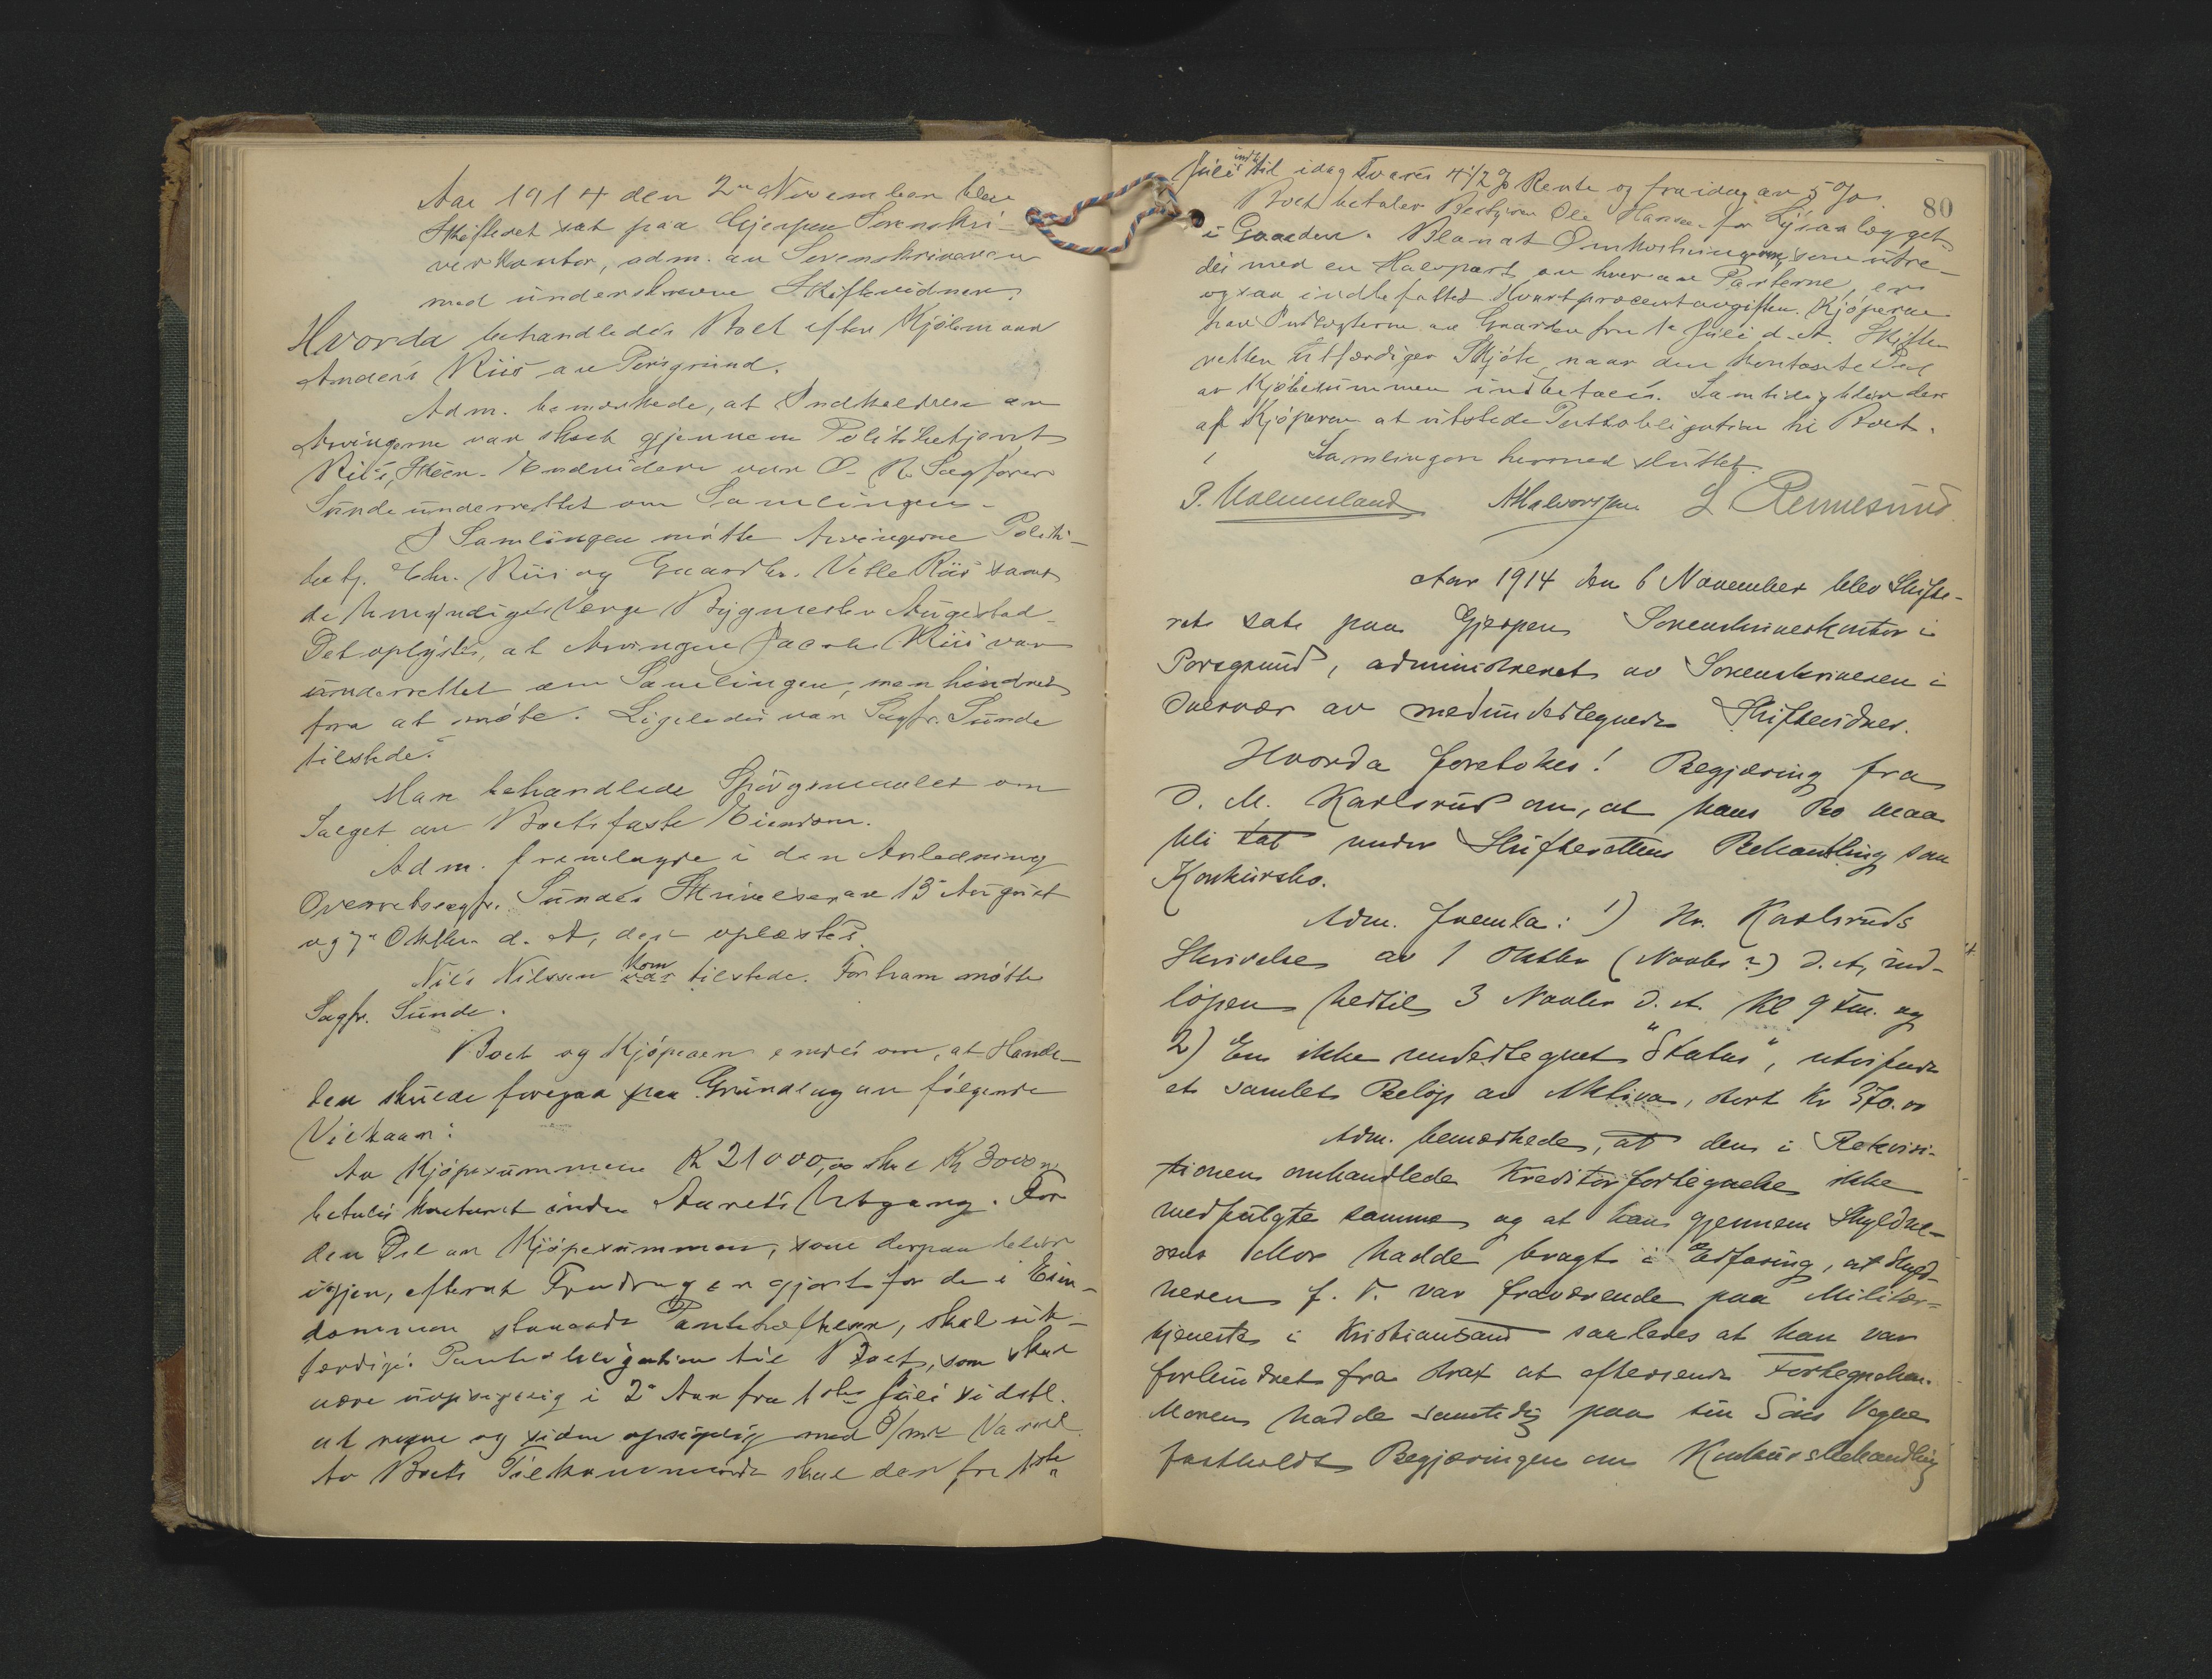 Aar 1914 den 2den November blev
Skifteret sat paa Gjerpen Sorenskri-
verkontor, adm. av Sorenskriveren
med underskrevne Skiftevidner.
Hvorda behandledes Boet efter Kjøbmand
Anders Riis av Porsgrund.
Adm. bemerkede, at Indkaldelse av
Arvingerne var skeet gjennem Politibetjent
Riis, Skien. Endvidere var O. R. Sagfører
Sunde underrettet om Samlingen.
I Samlingen møtte Arvingerne Politi-
betj. Chr. Riis og Gaardbr. Vetle Riis samt
de Umyndiges Verge Bygmester Augestad.
Det oplystes, at Arvingen Jacob Riis var
underrettet om Samlingen, men hindret
fra at møte. Ligeledes var Sagfr. Sunde
tilstede.
Man behandlede Spørgsmaalet om
Salget av Boets faste Eiendom.
Adm. fremlagde i den Anledning
Overretssagfr. Sundes Skrivelser av 13 August
og 7de Oktbr. d. A., der oplæstes.
Nils Nilssen kom tilstede. For ham møtte
Sagfr. Sunde.
Boet og Kjøperen enedes om, at Hande-
len skulde foregaa paa Grundlag av følgende
Vilkaar:
Av Kjøpesummen Kr 21000,00 skal Kr 3000,00
betales kontant inden Aarets Utgang. For
den Del av Kjøpesummen, som derpaa blir
igjen, efterat Fradrag er gjort for de i Eien-
dommen staaende Pantehæftelser, skal ut-
færdiges Panteobligation til Boet, som skal
være uopsigelig i 2 Aar fra 1ste Juli sidstl.
at regne og siden opsigelig med 3/mrs Varsel.
Av Boets Tilkommende skal der fra 1ste
80
Juli indtil idag svares 4 1/2 % Rente og fra idag av 5 %.
Boet betaler Bestyrer Ole Hansen for Lysanlegget
i Gaarden. Blandt Omkostningerne, som utre-
des med en Halvpart av hver av Parterne, er
ogsaa indbefattet Halvprocentavgiften. Kjøperen
har Indtægterne av Gaarden fra 1ste Juli d. A. Skifte-
retten utfærdiger Skjøte, naar den kontante Del
av Kjøbesummen indbetales. Samtidig blir der
af Kjøperen at utstede Pantobligation til Boet.
Samlingen hermed sluttet.
P. Malmsland A Halvorsen L Rennesund
Aar 1914 den 6 November blev Skifte-
ret sat paa Gjerpen Sorenskriverkontor i
Porsgrund, administreret av Sorenskriveren i
Overvær av medundertegnede Skiftevidner.
Hvorda foretokes: Begjæring fra
O. M. Karlsrud om, at hans Bo maa
bli tat under Skifterettens Behandling som
Konkursbo.
Adm. fremla: 1) Hr. Karlsruds
Skrivelse av 1 Oktbr (Novbr?) d. A., ind-
løpen hertil 3 Novbr d. A. Kl 9 Fm. og
2) En ikke undertegnet "Status", utvisende
et samlet Beløp av Aktiva, stort Kr 370.00
Adm. bemerkede, at den i Rekvisi-
tionen omhandlede Kreditorfortegnelse ikke
medfulgte samme og at han gjennem Skyldne-
rens Mor hadde bragt i Erfaring, at Skyld-
neren f. T. var fraværende paa Militær-
tjeneste i Kristiansand saaledes at han var
forhindret fra strax at eftersende Fortegnelsen.
Moren hadde samtidig paa sin Søns Vegne
fastholdt Begjæringen om Konkursbehandling